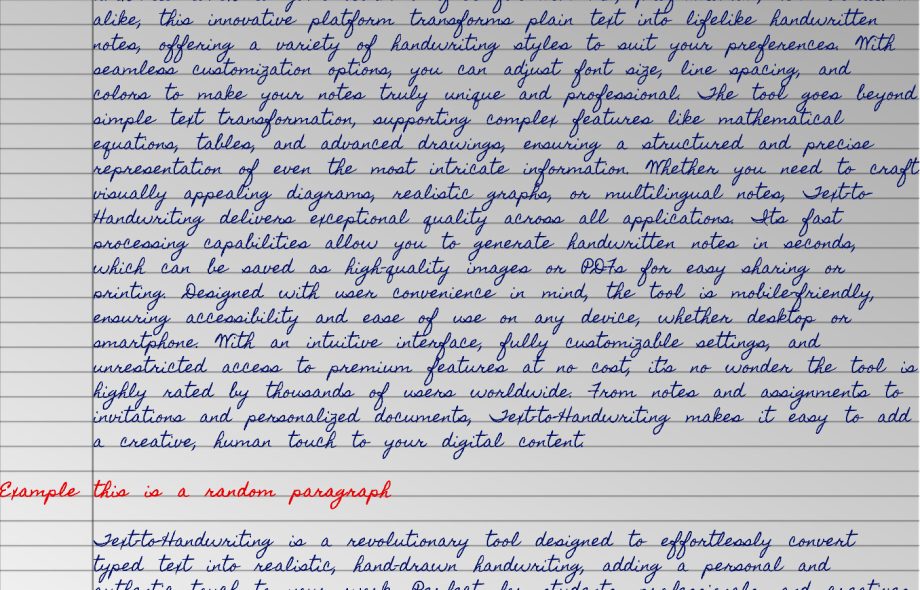 alike, this innovative platform transforms plain text into lifelike handwritten
notes, offering a variety of handwriting styles to suit your preferences. With
seamless customization options, you can adjust font size, line spacing, and
colors to make your notes truly unique and professional. The tool goes beyond
simple text transformation, supporting complex features like mathematical
equations, tables, and advanced drawings, ensuring a structured and precise
representation of even the most intricate information. Whether you need to craft
visually appealing diagrams, realistic graphs, or multilingual notes, Text-to-
Handwriting delivers exceptional quality across all applications. Its fast
processing capabilities allow you to generate handwritten notes in seconds,
which can be saved as high-quality images or PDFs for easy sharing or
printing. Designed with user convenience in mind, the tool is mobile-friendly,
ensuring accessibility and ease of use on any device, whether desktop or
smartphone. With an intuitive interface, fully customizable settings, and
unrestricted access to premium features at no cost, it's no wonder the tool is
highly rated by thousands of users worldwide. From notes and assignments to
invitations and personalized documents, Text-to-Handwriting makes it easy to add
a creative, human touch to your digital content.
Example this is a random paragraph
Text-to-Handwriting is a revolutionary tool designed to effortlessly convert
typed text into realistic, hand-drawn handwriting, adding a personal and